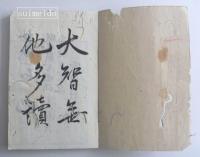 大智無
他多讀
suimeido